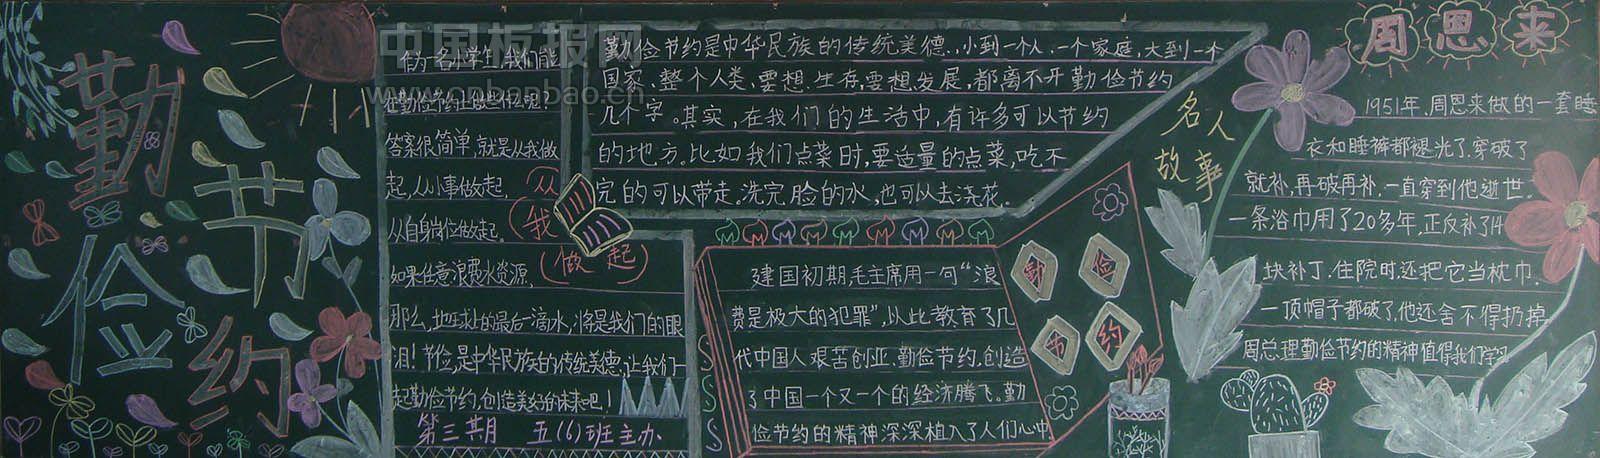 勤俭节约
中国板报网
www.cnbanbao.cn
作为一名小学生,我们能
在勤俭节约上做些什么呢?
答案很简单,就是从我做
起,从小事做起,
从自身岗位做起。
如果任意浪费水资源,
那么,地球上的最后一滴水,将是我们的眼
泪!节俭,是中华民族的传统美德,让我们一
起勤俭节约,创造美好的未来吧!
第三期 五(6)班主办
从
我
做起
勤俭节约是中华民族的传统美德..小到一个人、一个家庭,大到一个
国家、整个人类,要想生存,要想发展,都离不开勤俭节约
几个字。其实,在我们的生活中,有许多可以节约
的地方。比如我们点菜时,要适量的点菜,吃不
完的可以带走。洗完脸的水,也可以去浇花。
建国初期,毛主席用一句“浪
费是极大的犯罪”,以此教育了几
代中国人艰苦创业、勤俭节约,创造
了中国一个又一个的经济腾飞。勤
俭节约的精神深深植入了人们心中
勤俭
节约
名人
故事
周恩来
1951年,周恩来做的一套睡
衣和睡裤都褪光了,穿破了
就补,再破再补,一直穿到他逝世.
一条浴巾用了20多年,正反补了14
块补丁.住院时,还把它当枕巾.
一顶帽子都破了,他还舍不得扔掉.
周总理勤俭节约的精神值得我们学习